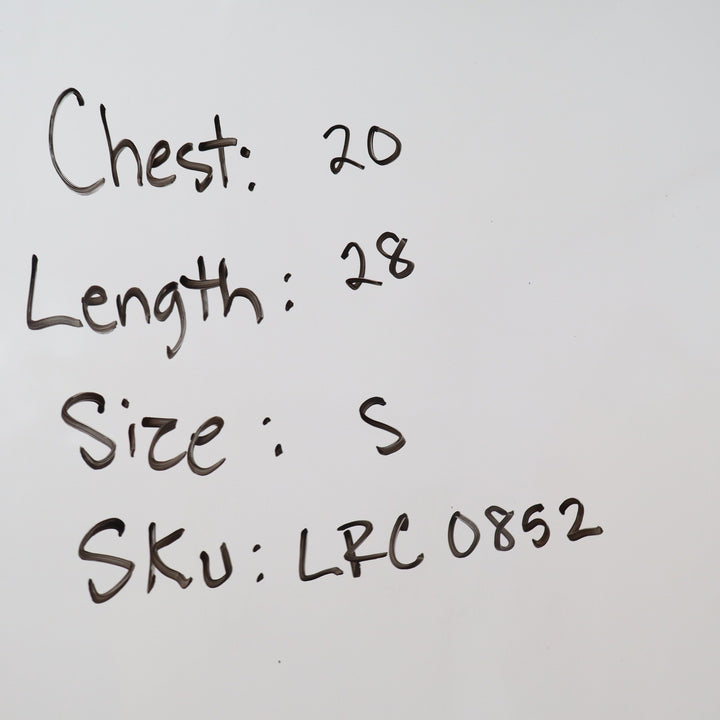 Chest: 20
Length: 28
Size: S
SKU: LRC 0852